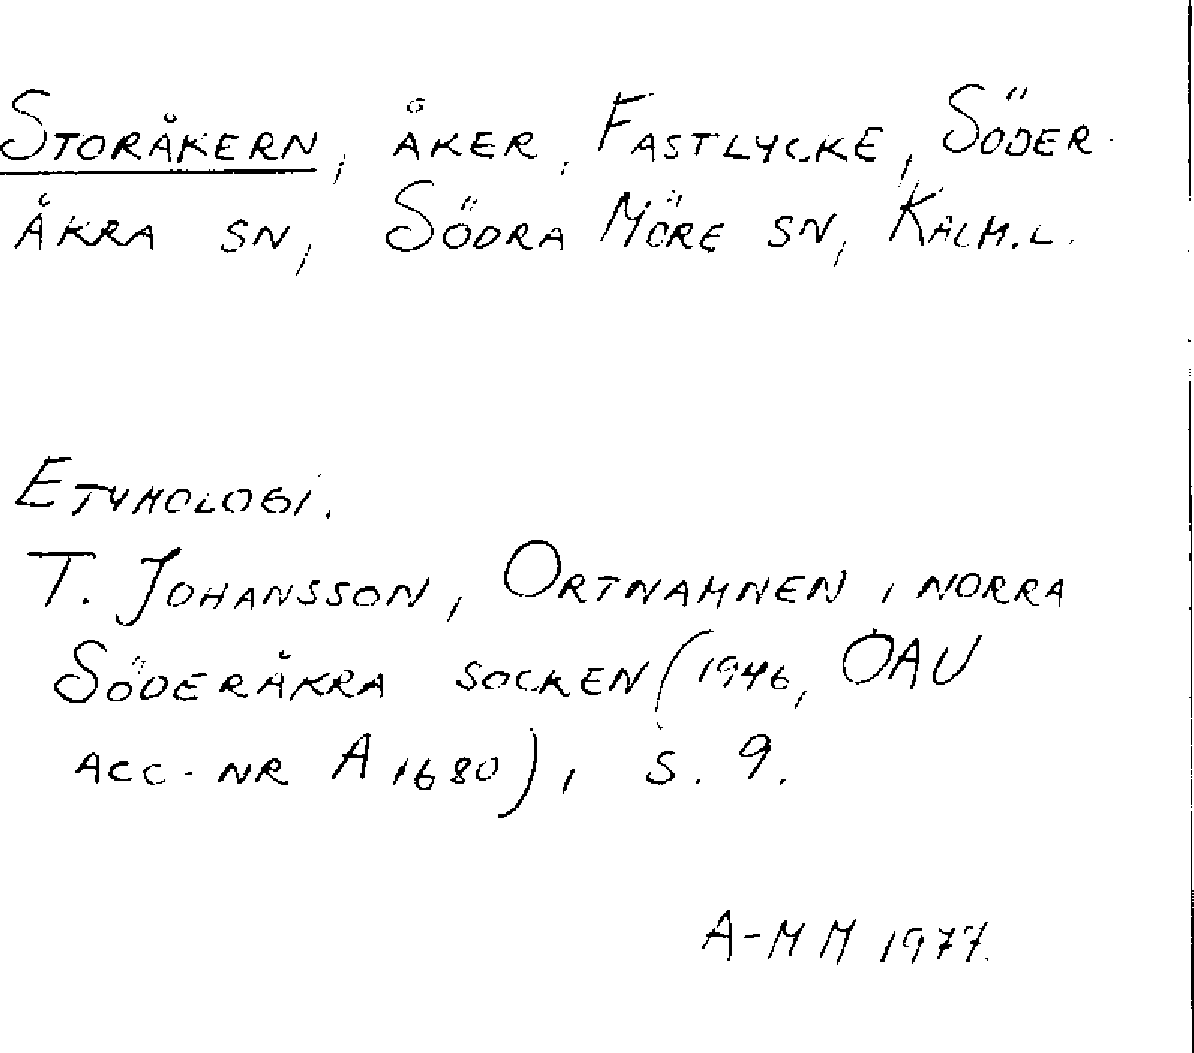 Storåkern, åker, Fastlycke, Söder-
åkra sn, Södra Möre sn, Kalm.l.
Etymologi.
T. Johansson, Ortnamnen i norra
Söderåkra socken (1946, OAU
acc-nr A 1680), s. 9.
A-MM 1977.